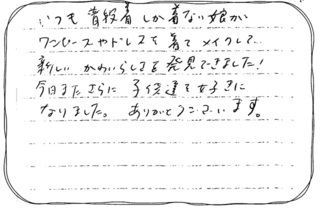 いつも普段着しか着ない娘が
ワンピースやドレスを着てメイクして
新しいかわいらしさを発見できました!
今日またさらに子供達を好きに
なりました。ありがとうございます。